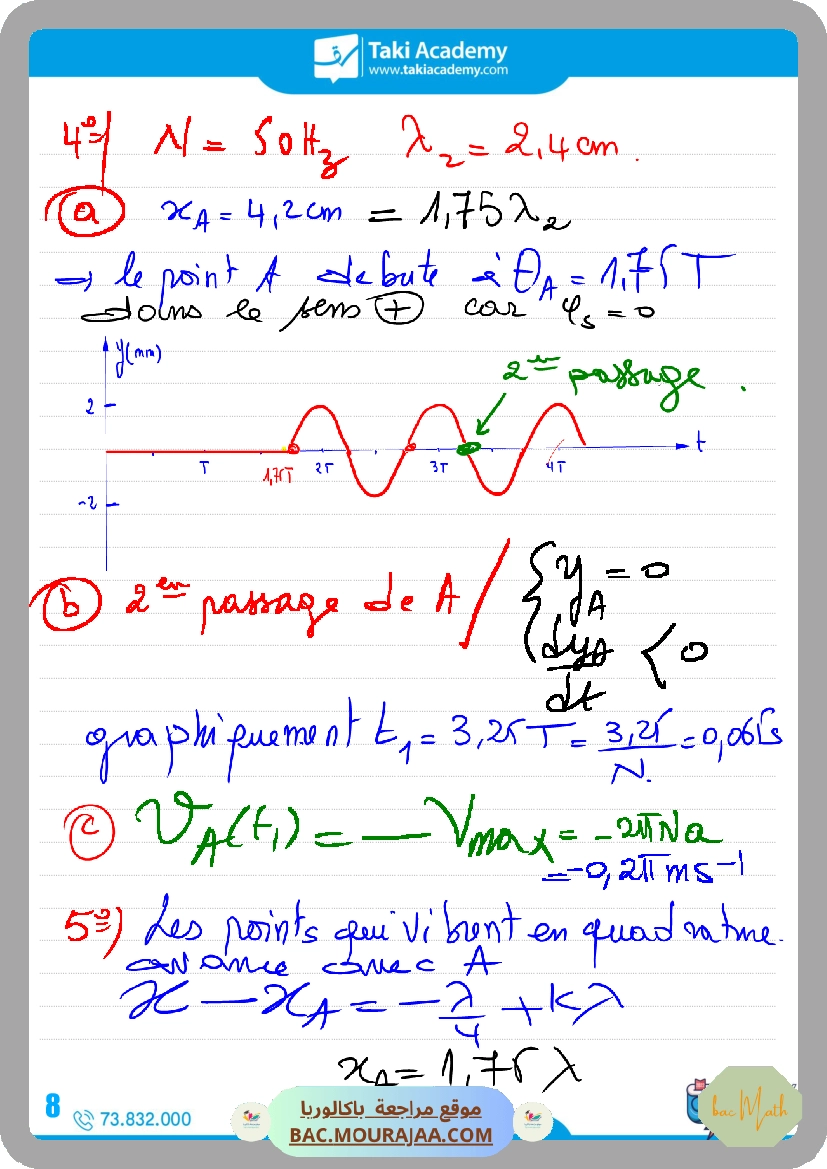 Taki Academy
www.takiacademy.com
4°/ N = 50Hz λ₂ = 2,4 cm.
ⓐ x_A = 4,2 cm = 1,75 λ₂
→ le point A debute à θ_A = 1,75 T
dans le sens ⊕ car φ_s = 0
y(mm)
2ème passage.
2
t
T 1,75T 2T 3T 4T
-2
ⓑ 2ème passage de A / { y_A = 0
dy_A/dt < 0
graphiquement t₁ = 3,25 T = 3,25/N. = 0,065s
ⓒ V_A(t₁) = - V_max = -2πNa
= -0,2π ms⁻¹
5°) Les points qui vibrent en quadrature
avance avec A
x - x_A = -λ/4 + kλ
x_A = 1,75 λ
8 73.832.000
موقع مراجعة باكالوريا
BAC.MOURAJAA.COM
bac Math